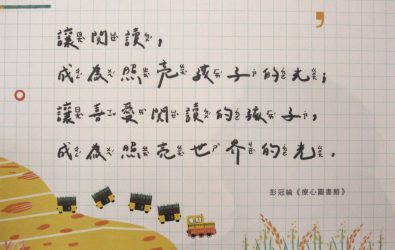 讓閱讀,
成為照亮孩子的光;
讓喜愛閱讀的孩子,
成為照亮世界的光.
彭冠綸《療心圖書館》